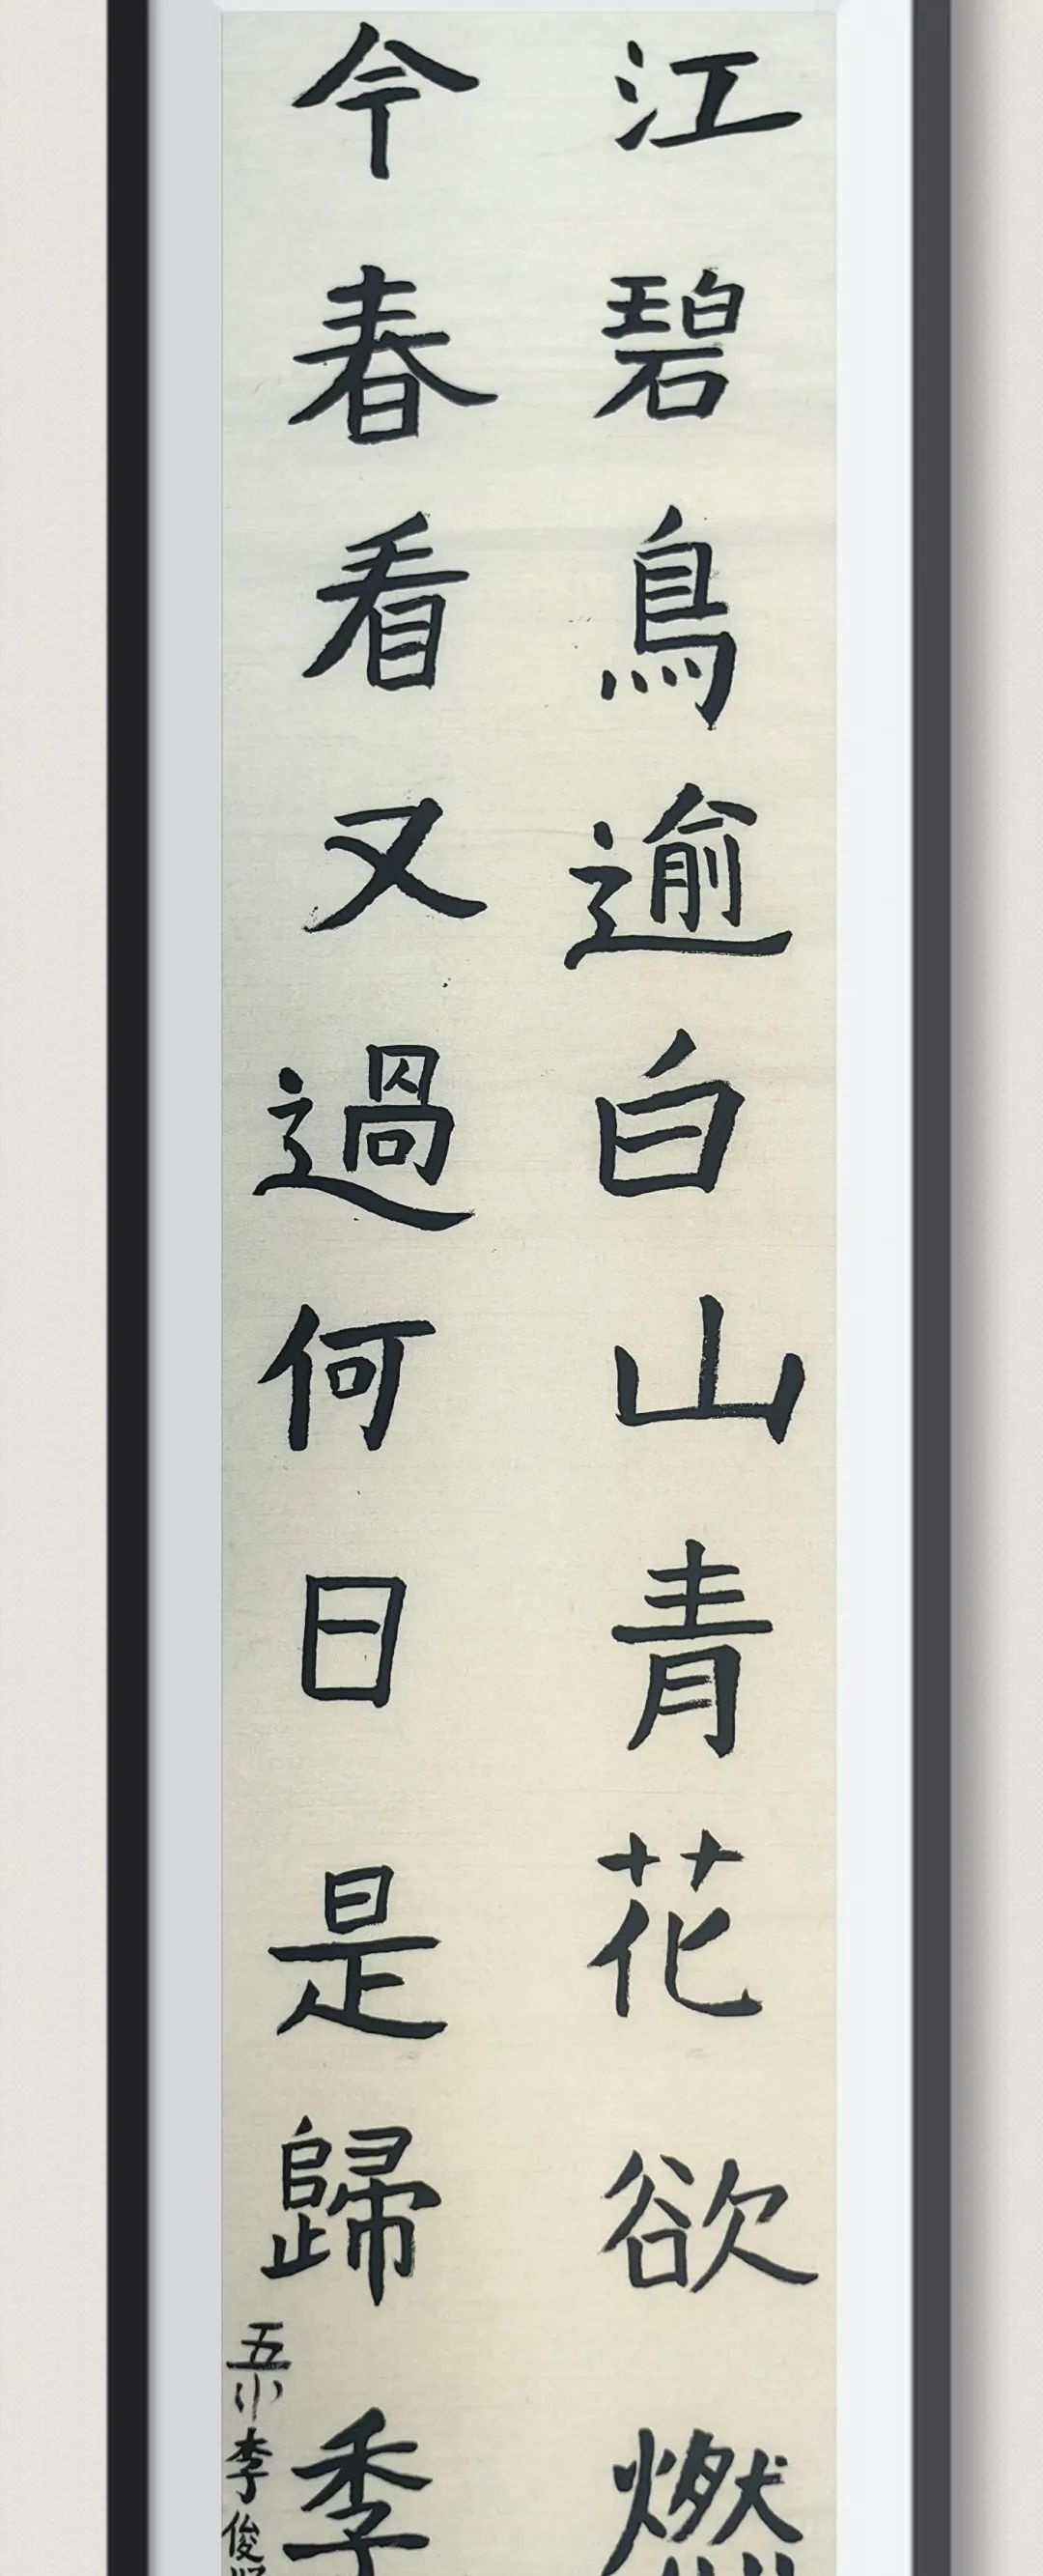 江碧鳥逾白山青花欲燃
今春看又過何日是歸季
五小李俊